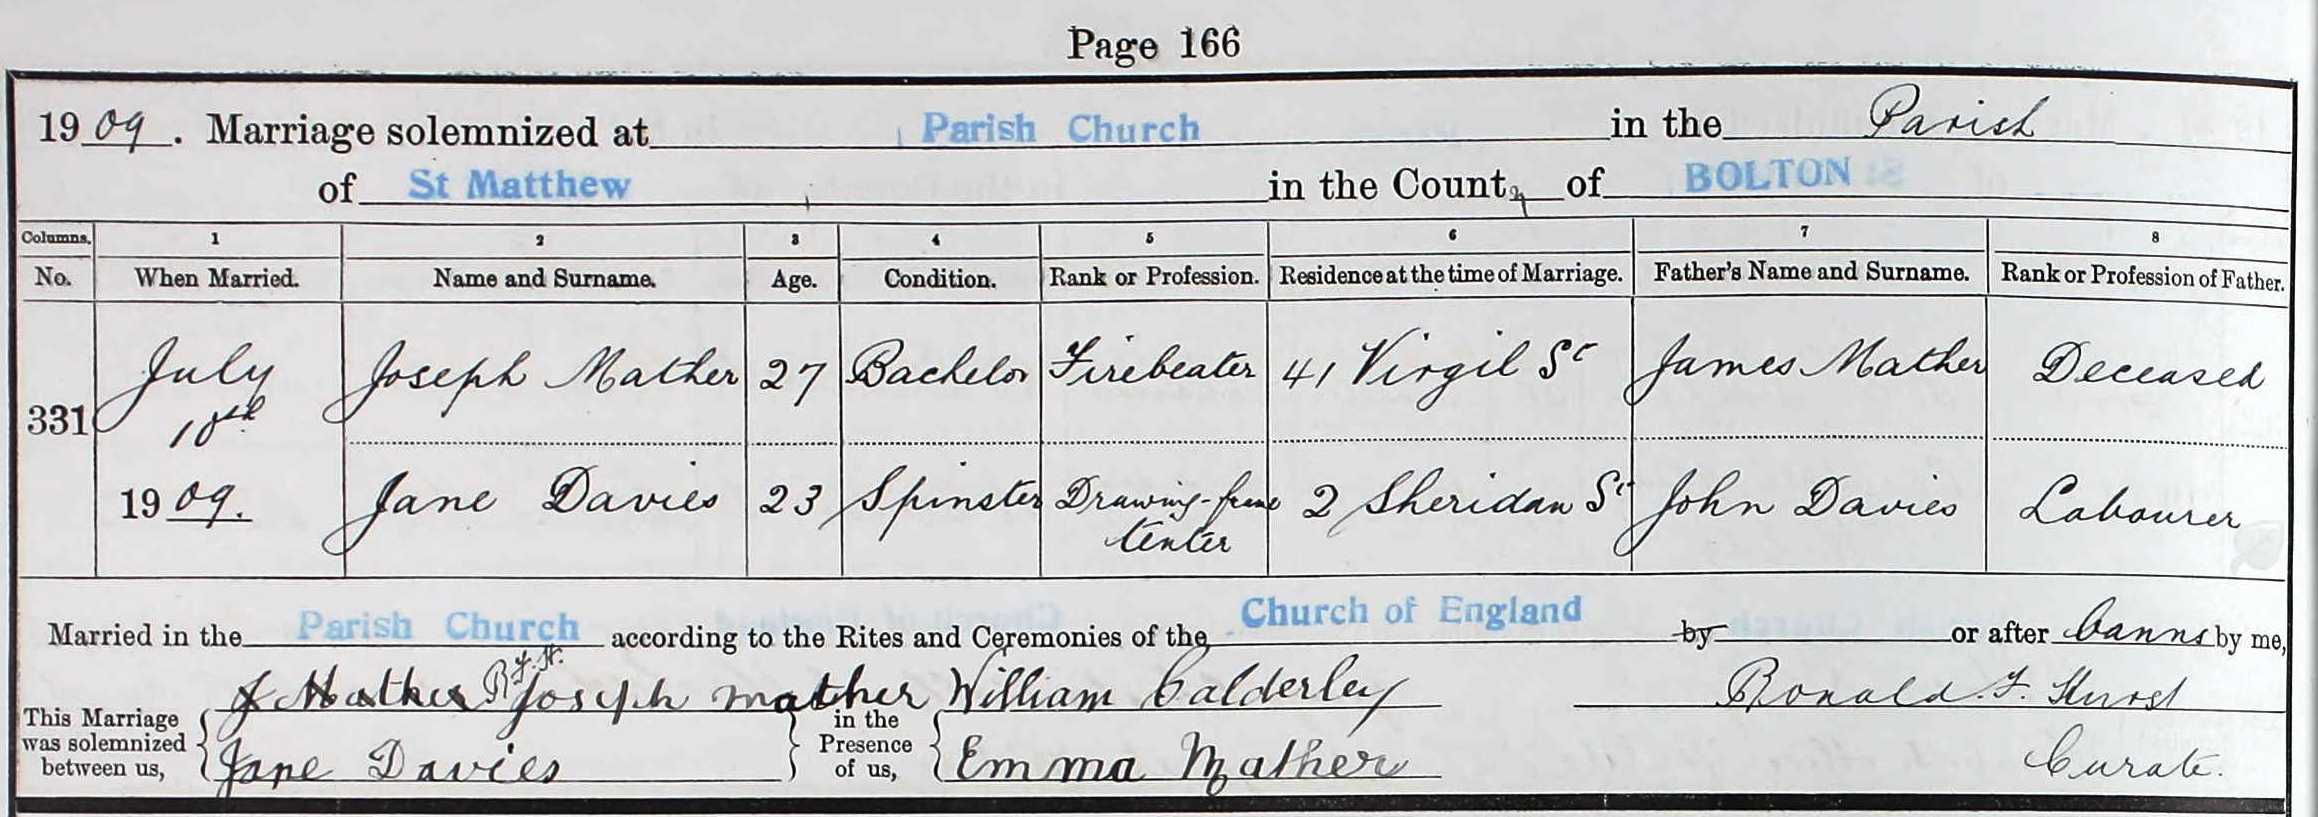 Page 166
1909. Marriage solemnized at Parish Church in the Parish
of St Matthew in the County of BOLTON
Columns. 1 2 3 4 5 6 7 8
No. When Married. Name and Surname. Age. Condition. Rank or Profession. Residence at the time of Marriage. Father's Name and Surname. Rank or Profession of Father.
July Joseph Mather 27 Bachelor Firebeater 41 Virgil St James Mather Deceased
331 10th
1909. Jane Davies 23 Spinster Drawing-frame 2 Sheridan St John Davies Labourer
tenter
Married in the Parish Church according to the Rites and Ceremonies of the Church of England by or after banns by me,
J Mather R.F.H. Joseph mather William Calderley Ronald. F. Hurst
This Marriage was solemnized between us, in the Presence of us,
Jane Davies Emma Mather Curate.